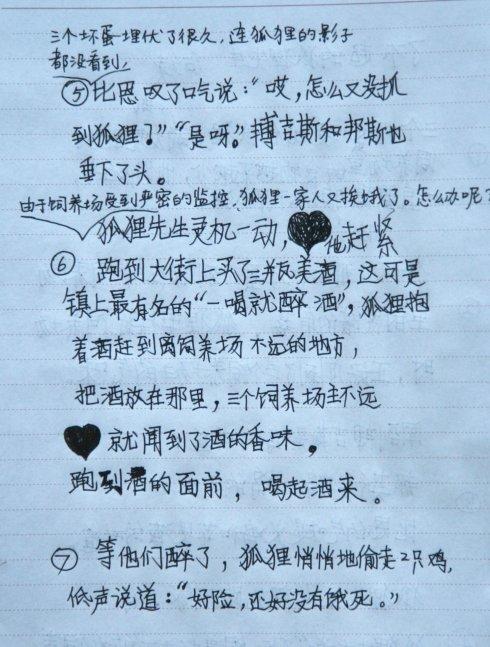 三个坏蛋埋伏了很久，连狐狸的影子
都没看到，
⑤比恩叹了口气说：“哎，怎么又没抓
到狐狸？”“是呀。”博吉斯和邦斯也
垂下了头。
由于饲养场受到严密的监控，狐狸一家人又挨饿了。怎么办呢？
狐狸先生灵机一动，他赶紧
⑥ 跑到大街上买了三瓶美酒，这可是
镇上最有名的“一喝就醉酒”，狐狸抱
着酒赶到离饲养场不远的地方，
把酒放在那里，三个饲养场主不远
就闻到了酒的香味。
跑到酒的面前，喝起酒来。
⑦ 等他们醉了，狐狸悄悄地偷走2只鸡，
低声说道：“好险，还好没有饿死。”